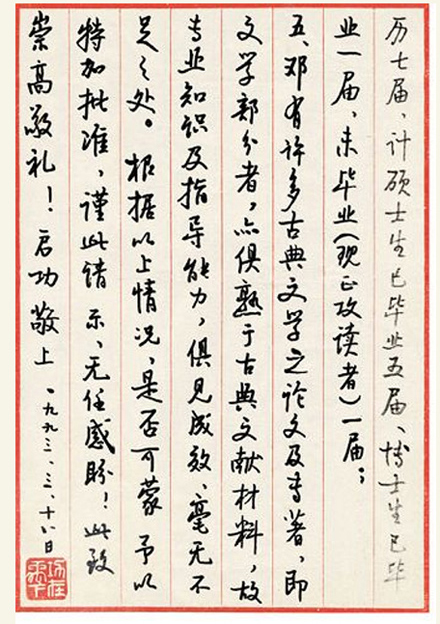 历七届，计硕士生已毕业五届、博士生已毕
业一届，未毕业（现正攻读者）一届；
五、邓有许多古典文学之论文及专著，即
文学部分者，亦俱熟于古典文献材料，故
专业知识及指导能力，俱见成效，毫无不
足之处。根据以上情况，是否可蒙 予以
特加批准，谨此请示，无任感盼！此致
崇高敬礼！启功敬上 一九九三、三、十八日